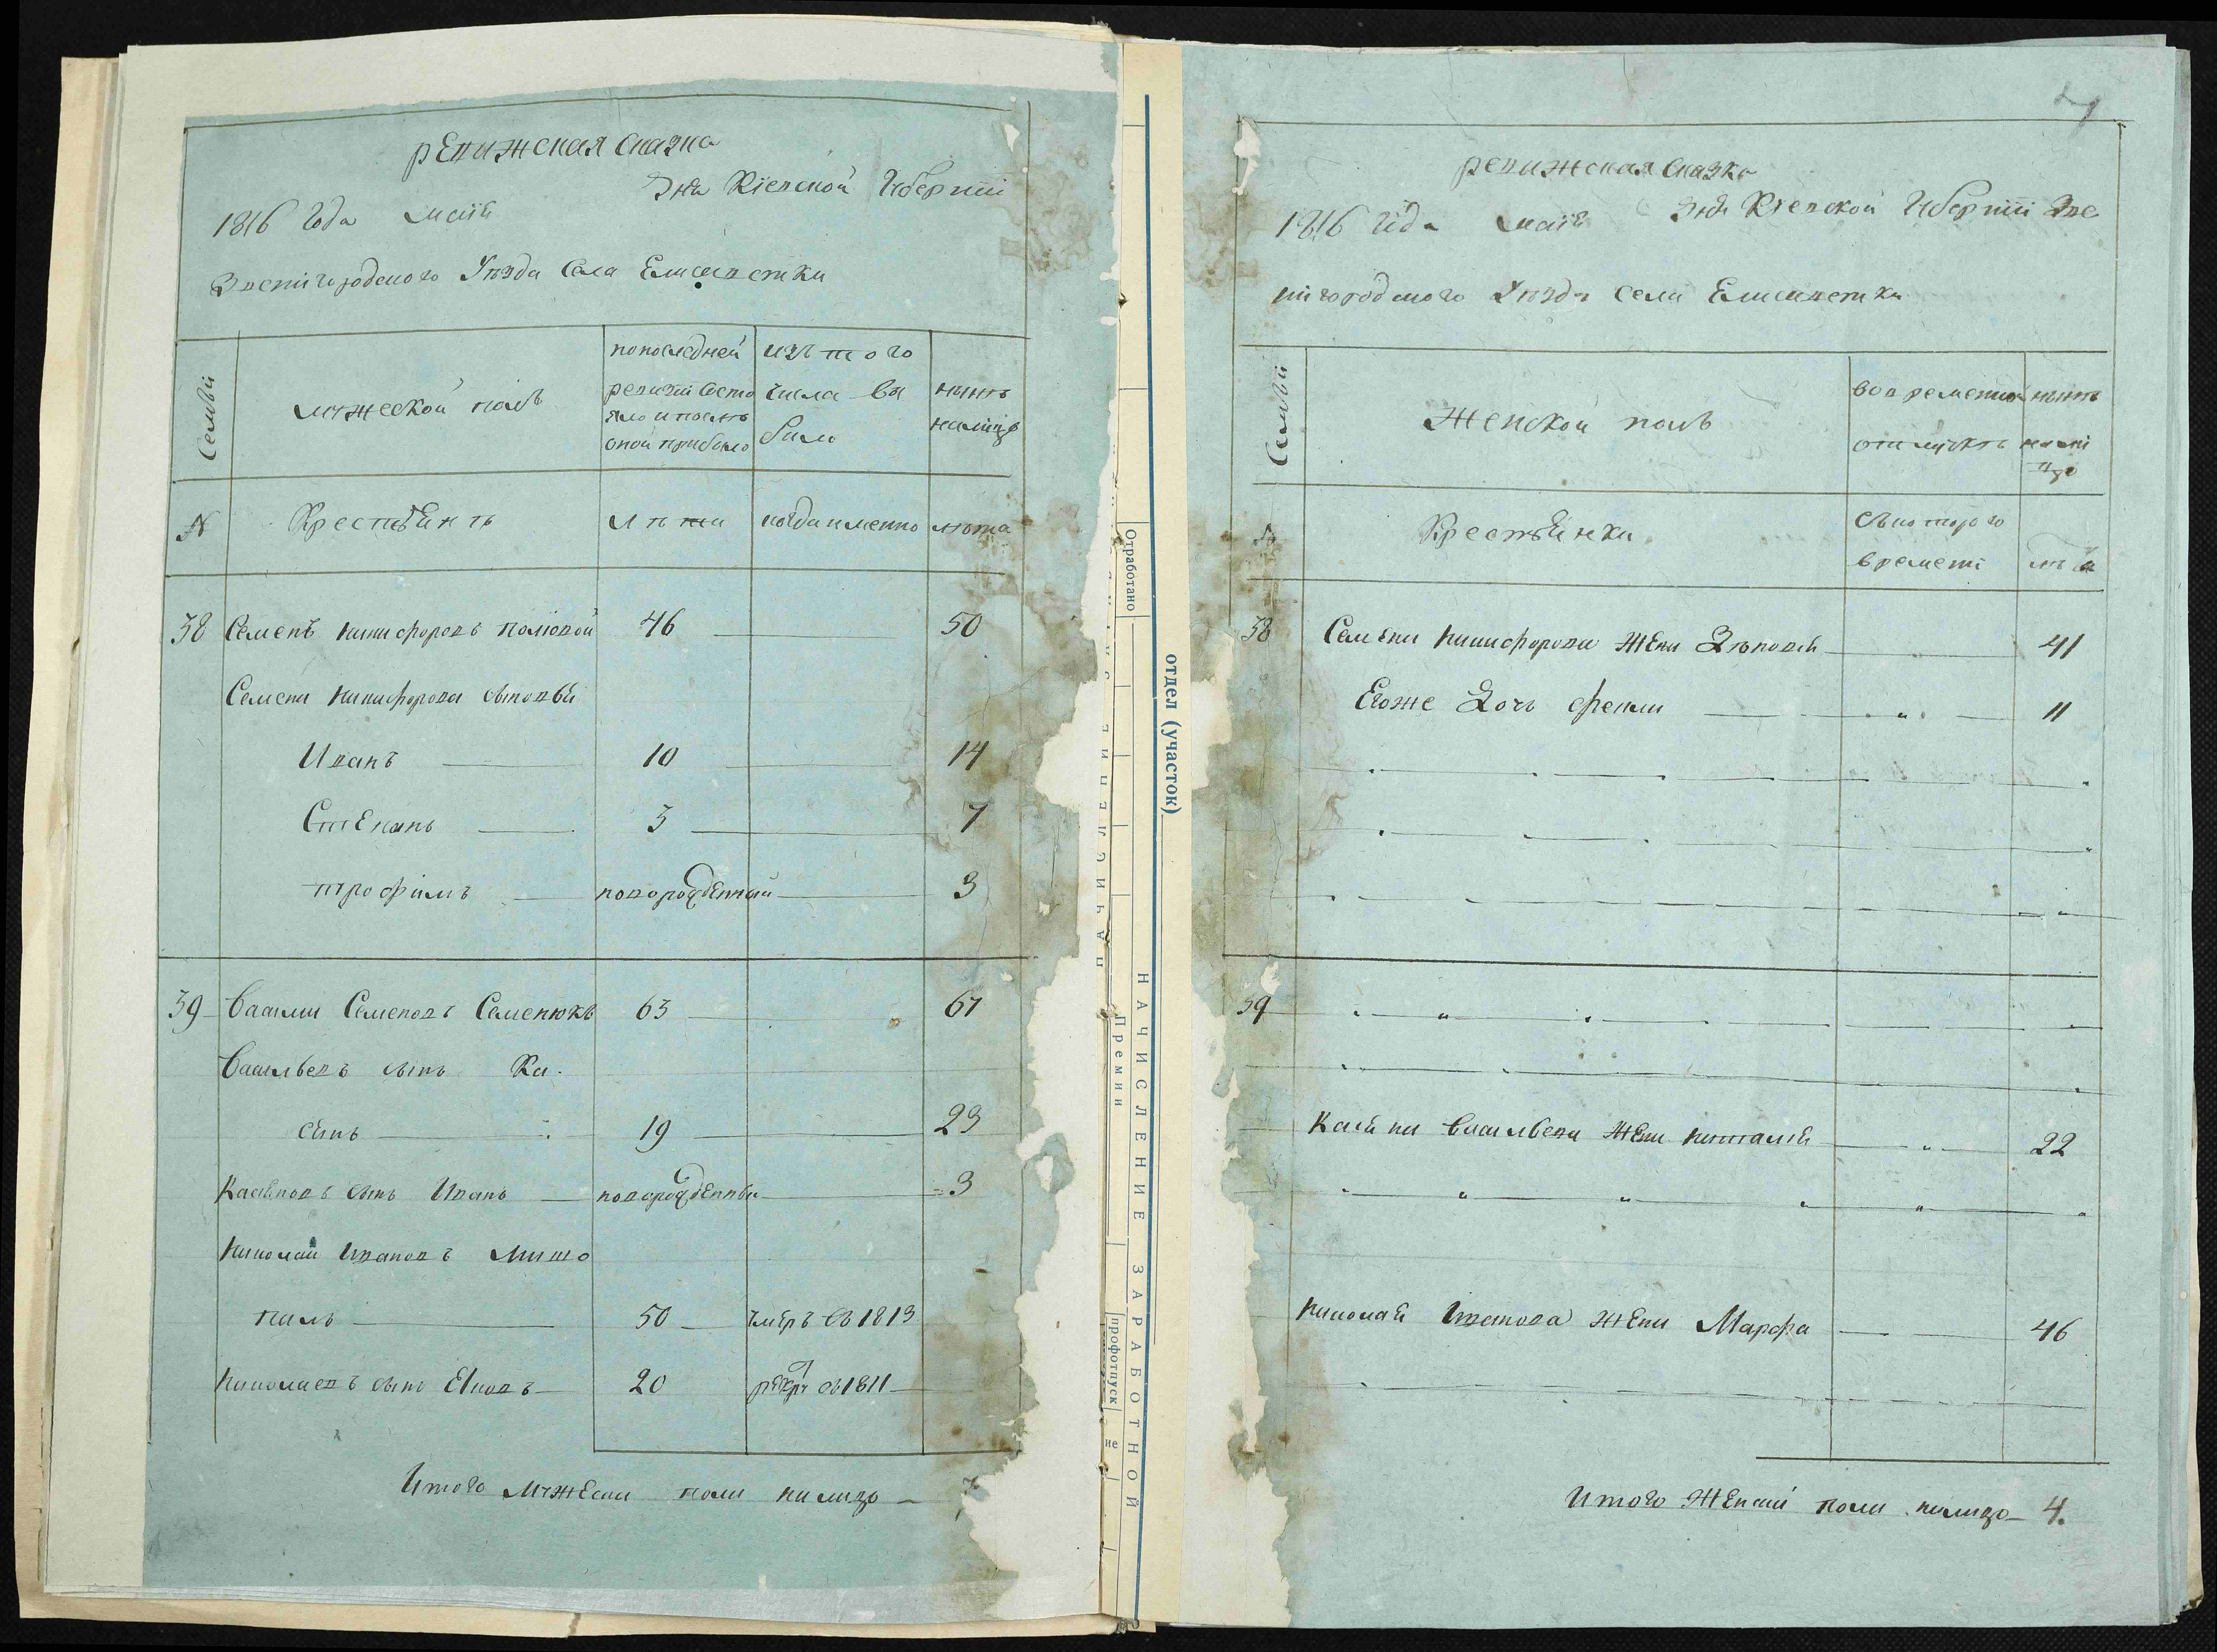 ревижская сказка
1816 года маія дня Кіевской Губерніи
Звенігородского Уезда Села Елисаветки
Семьи
мужеской полъ
по последней ревизіи состояло и послѣ оной прибыло
изъ того числа выбыло
нынѣ налицо
№
Крестьянѣ
лѣта
когда именно
лѣта
38 Семенъ никифоровъ 46 50
Семена никифорова сыновья
Иванъ 10 14
Степанъ 3 7
трофимъ новорожденный 3
39 Василий Семеновъ Семенюкъ 63 67
Васильевъ сынъ Ка
сьянъ 19 23
Касьяновъ сынъ Иванъ новорожденный 3
николай Ивановъ
50 умеръ въ 1813
николаевъ сынъ 20 въ 1811
Итого мужеска пола налицо
ревижская сказка
1816 года маія дня Кіевской Губерніи Зве
нігородского Уезда села Елисаветки
Семьи
Женской полъ
во временной отлучкѣ
нынѣ налицо
Крестьянки
съ которого времени
лѣта
38 Семена никифорова жена 41
Егоже дочь фекла 11
39
Касьяна Васильева жена наталія 22
николая Иванова жена Марфа 46
Итого Женска пола налицо 4.
Отработано
отдел (участок)
НАЧИСЛЕНИЕ ЗАРАБОТНОЙ
Премии
профотпуск
не